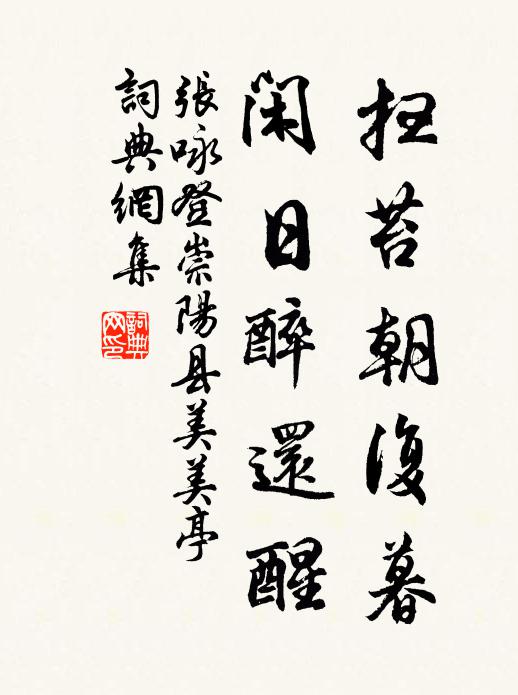 扫苔朝復暮
閑日醉還醒
張咏登崇陽县美美亭
詞典網集
詞典
网印